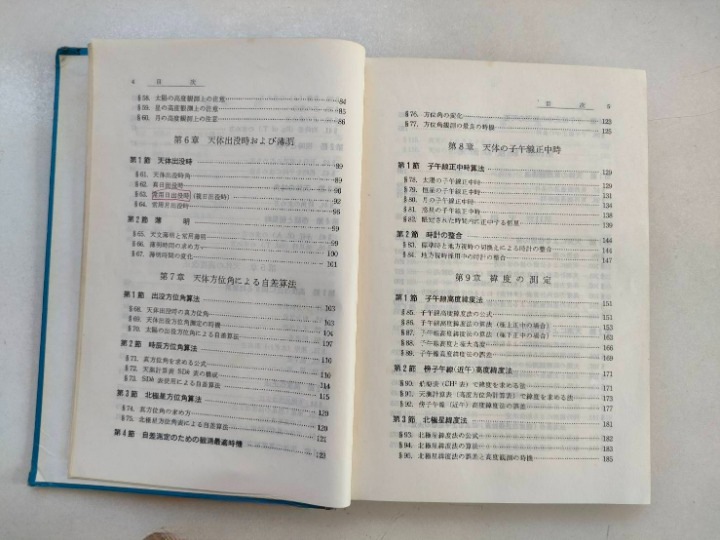 4 目次
§58. 太陽の高度観測上の注意 84
§59. 星の高度観測上の注意 85
§60. 月の高度観測上の注意 86
第6章 天体出没時および薄明
第1節 天体出没時 89
§61. 天体出没時角 89
§62. 真日出没時 90
§63. 常用日出没時(視日出没時) 92
§64. 常用月出没時 96
第2節 薄明 99
§65. 天文薄明と常用薄明 99
§66. 薄明時間の求め方 100
§67. 薄明時間の変化 101
第7章 天体方位角による自差算法
第1節 出没方位角算法 103
§68. 天体出没時の真方位角 103
§69. 天体出没方位角測定の時機 104
§70. 太陽の出没方位角による自差算法 107
第2節 時辰方位角算法 109
§71. 真方位角を求める公式
§72. 天測計算表 SDh 表の構成 114
§73. SDh 表使用による自差算法 115
第3節 北極星方位角算法 119
§74. 真方位角の求め方 119
§75. 北極星方位角表による自差算法 121
第4節 自差測定のための観測最適時機 123
目次 5
§76. 方位角の変化 123
§77. 方位角観測の最良の時機 125
第8章 天体の子午線正中時
第1節 子午線正中時算法 129
§78. 太陽の子午線正中時 129
§79. 恒星の子午線正中時 130
§80. 月の子午線正中時 134
§81. 惑星の子午線正中時 138
§82. 限定された時間内に正中する恒星 139
第2節 時計の整合 144
§83. 標準時と地方視時の切換えによる時計の整合 144
§84. 地方視時採用中の時計の整合 147
第9章 緯度の測定
第1節 子午線高度緯度法 151
§85. 子午線高度緯度法の公式 151
§86. 子午線高度緯度法の算法(極上正中の場合)
§87. 子午線高度緯度法の算法(極下正中の場合) 163
§88. 子午線高度と極大高度 166
§89. 子午線高度緯度法の誤差 169
第2節 傍子午線(近午)高度緯度法 171
§90. 傍子午線(近午)表で緯度を求める法 171
§91. 天測計算表(高度方位角計算表)で緯度を求める法 173
§92. 傍子午線(近午)高度緯度法の誤差 177
第3節 北極星緯度法 181
§93. 北極星緯度法の公式 181
§94. 北極星緯度法の算法
§95. 北極星緯度法の誤差と高度観測の時機 185